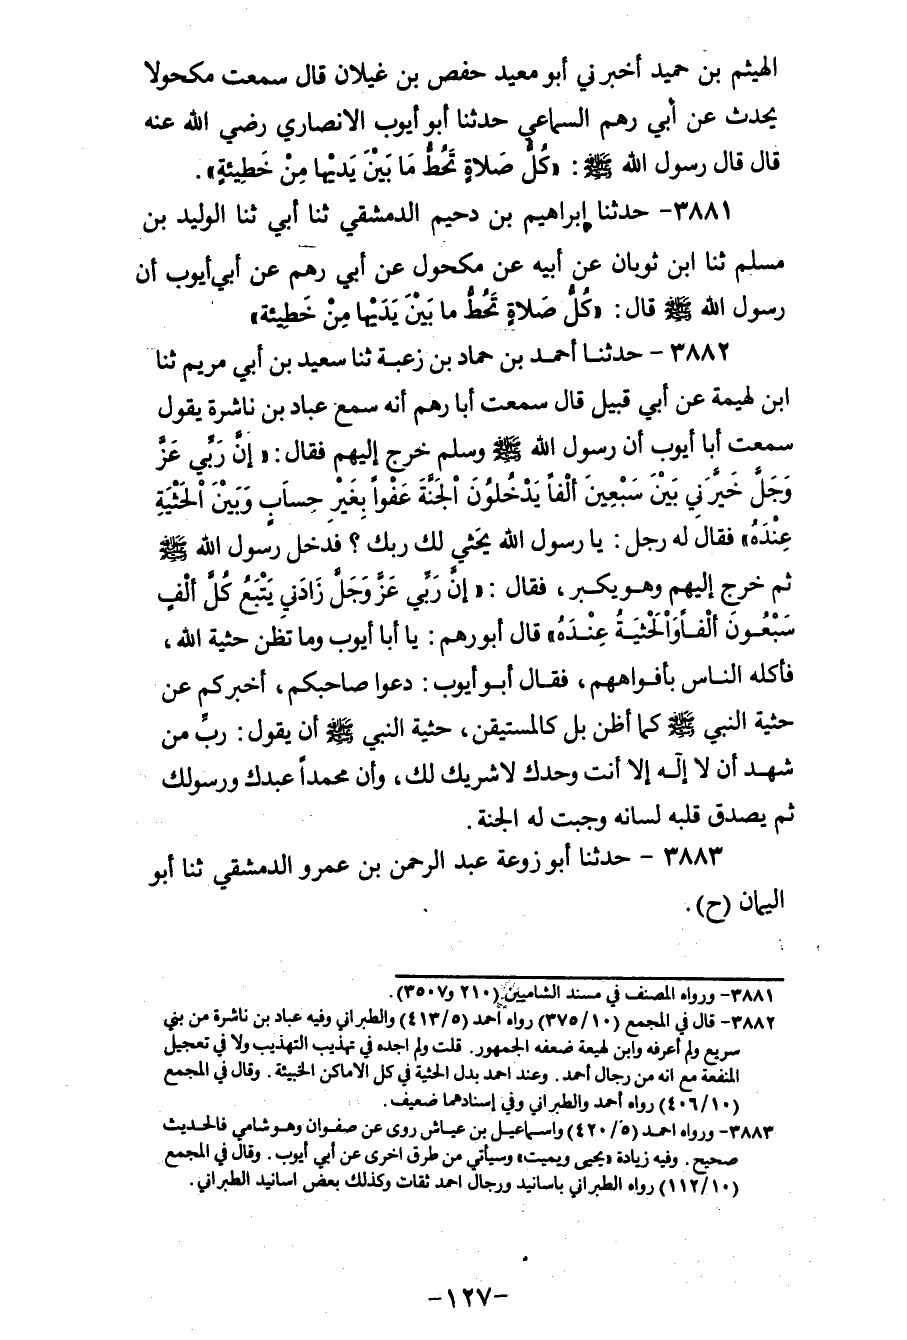 الهيثم بن حميد أخبرني أبو معيد حفص بن غيلان قال سمعت مكحولا
يحدث عن أبي رهم السماعي حدثنا أبو أيوب الانصاري رضي الله عنه
قال قال رسول الله ﷺ : «كُلُّ صَلاةٍ تَحُطُّ مَا بَيْنَ يَدَيْها مِنْ خَطِيئةٍ» .
٣٨٨١- حدثنا إبراهيم بن دحيم الدمشقي ثنا أبي ثنا الوليد بن
مسلم ثنا ابن ثوبان عن أبيه عن مكحول عن أبي رهم عن أبي أيوب أن
رسول الله ﷺ قال : «كُلُّ صَلاةٍ تَحُطُّ ما بَيْنَ يَدَيْها مِنْ خَطِيئة»
٣٨٨٢ - حدثنا أحمد بن حماد بن زعبة ثنا سعيد بن أبي مريم ثنا
ابن لهيمة عن أبي قبيل قال سمعت أبا رهم أنه سمع عباد بن ناشرة يقول
سمعت أبا أيوب أن رسول الله ﷺ وسلم خرج إليهم فقال : « إنَّ رَبِّي عَزَّ
وَجَلَّ خَيَّرَنِي بَيْنَ سَبْعِينَ ألْفاً يَدْخُلُونَ الْجَنَّةَ عَفْواً بِغَيْرِ حِسابٍ وَبَيْنَ الْحَثْيَةِ
عِنْدَهُ» فقال له رجل : يا رسول الله يحَثي لك ربك ؟ فدخل رسول الله ﷺ
ثم خرج إليهم وهو يكبر ، فقال : « إنَّ رَبِّي عَزَّ وَجَلَّ زَادَنِي يَتْبَعُ كُلَّ ألْفٍ
سَبْعُونَ ألْفاً وَالْحَثْيَةُ عِنْدَهُ» قال أبو رهم : يا أبا أيوب وما تظن حثية الله ،
فأكله الناس بأفواههم ، فقال أبو أيوب : دعوا صاحبكم ، أخبركم عن
حثية النبي ﷺ كما أظن بل كالمستيقن ، حثية النبي ﷺ أن يقول : ربِّ من
شهد أن لا إلٰه إلا أنت وحدك لا شريك لك ، وأن محمداً عبدك ورسولك
ثم يصدق قلبه لسانه وجبت له الجنة .
٣٨٨٣ - حدثنا أبو زوعة عبد الرحمن بن عمرو الدمشقي ثنا أبو
اليمان (ح) .
٣٨٨١- ورواه المصنف في مسند الشاميين (٢١٠ و٣٥٠٧) .
٣٨٨٢- قال في المجمع (٣٧٥/١٠) رواه أحمد (٤١٣/٥) والطبراني وفيه عباد بن ناشرة من بني
سريع ولم أعرفه وابن لهيعة ضعفه الجمهور . قلت ولم اجده في تهذيب التهذيب ولا في تعجيل
المنفعة مع انه من رجال أحمد . وعند احمد بدل الحثية في كل الاماكن الخبيئة . وقال في المجمع
(٤٠٦/١٠) رواه أحمد والطبراني وفي إسنادهما ضعيف .
٣٨٨٣- ورواه احمد (٤٢٠/٥) واسماعيل بن عياش روى عن صفوان وهو شامي فالحديث
صحيح . وفيه زيادة «يحيى ويميت» وسيأتي من طرق اخرى عن أبي أيوب . وقال في المجمع
(١١٢/١٠) رواه الطبراني باسانيد ورجال احمد ثقات وكذلك بعض اسانيد الطبراني .
-١٢٧-